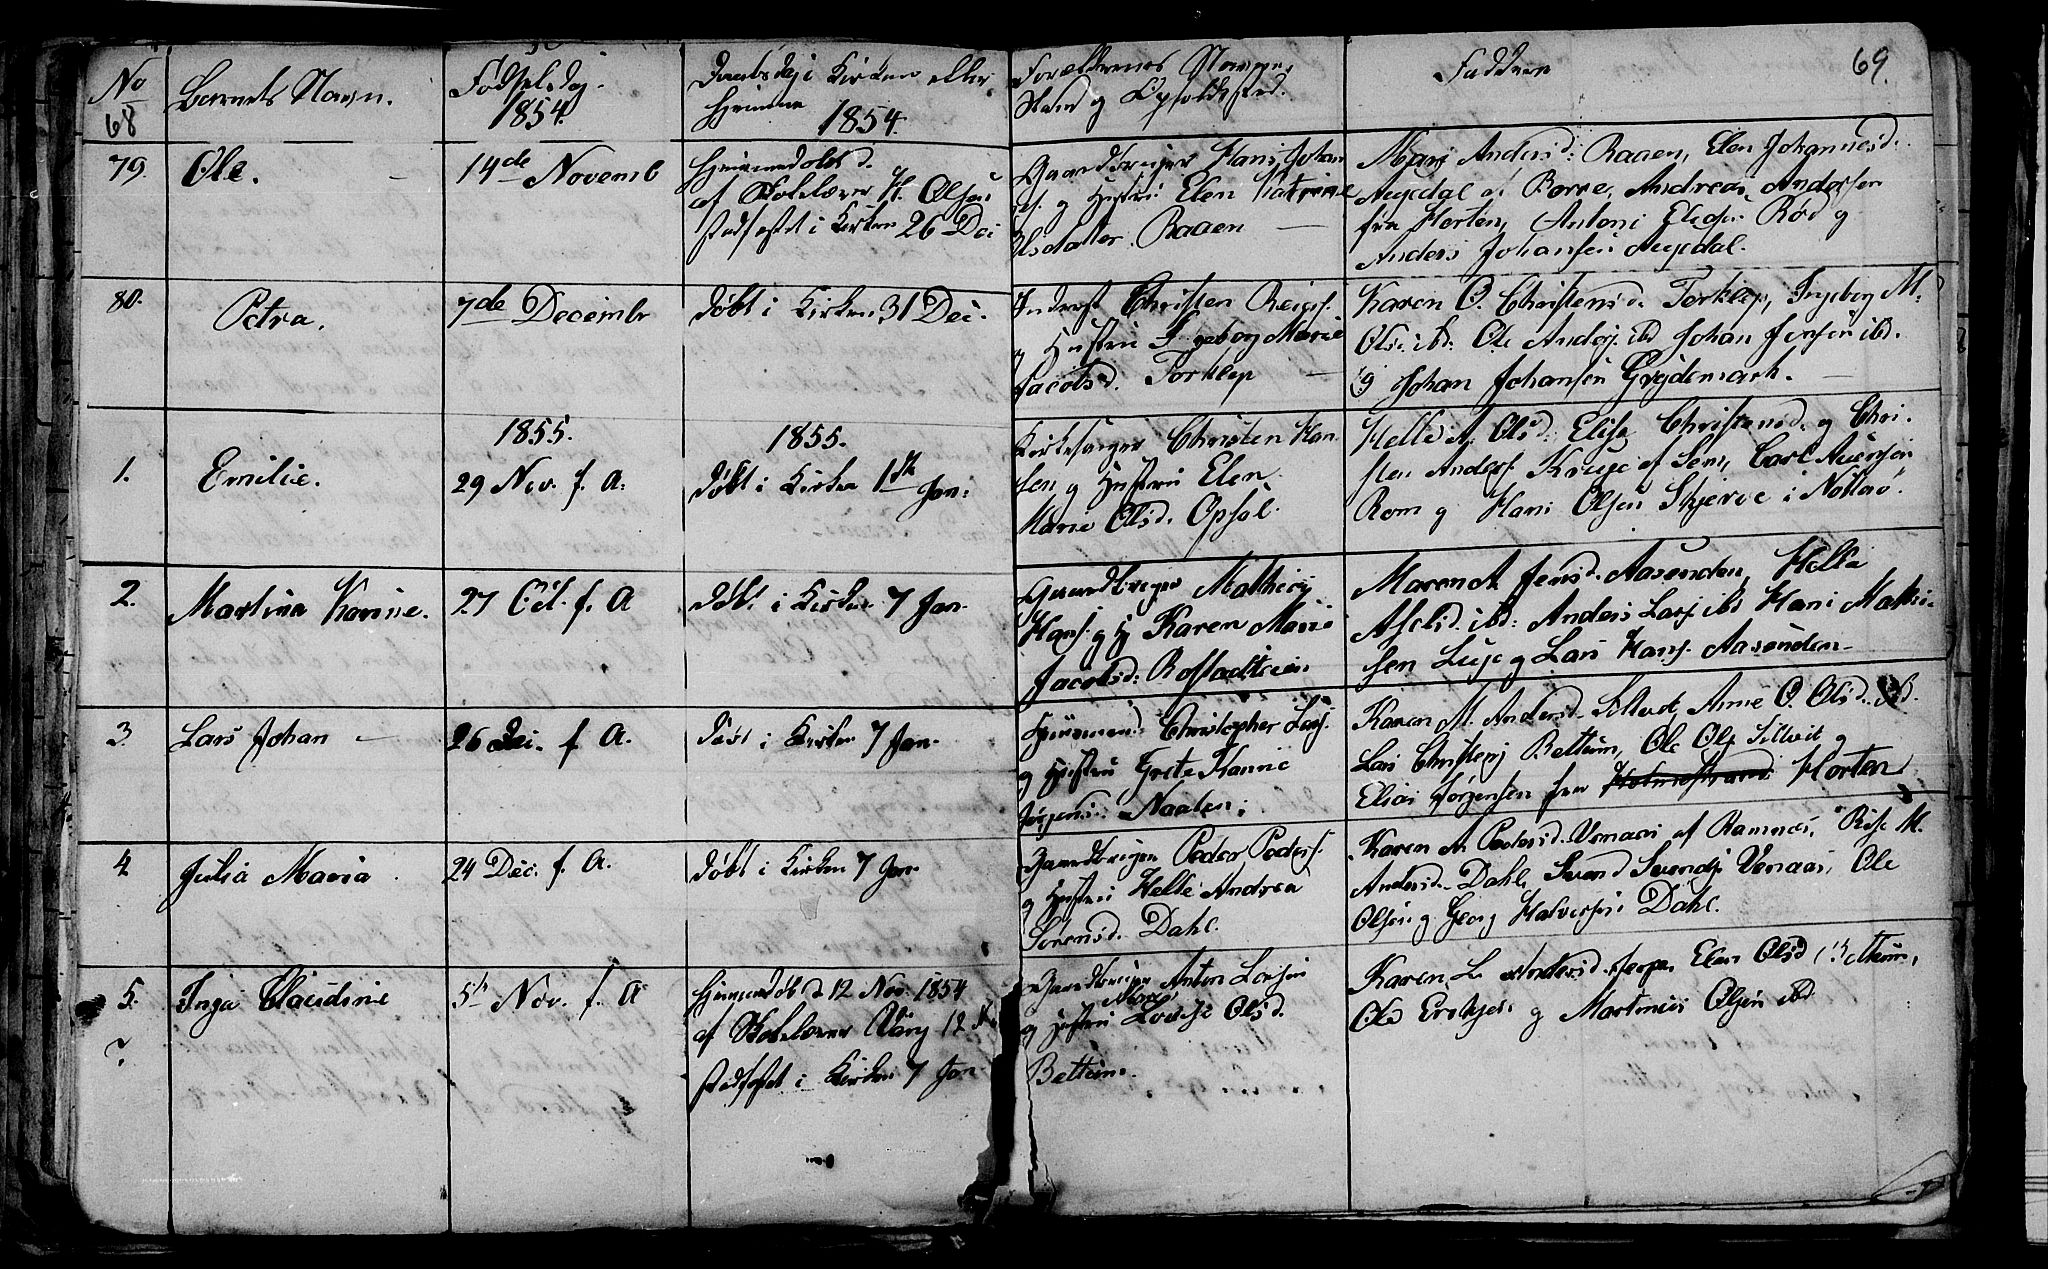 No
68
Barnets Navn.
Fødselsdag.
1854.
Daabsdag i Kirken eller
Hjemme
1854.
Forældrenes Navne,
Stand og Opholdsted.
Faddere
69.
79.
Ole.
14de Novemb
Hjemmedøbt d.
af Skolelærer H. Olsen
stadfæstet i Kirken 26 Dec
Gaardbruger Hans Johan
s. og Hustru Elen Katrine
Olsdatter. Raaen
Mari Andersd: Raaen, Elen Johannesd.
af Borre, Andreas Andersen
fra Horten, Antoni Rød og
Anders Johansen
80.
Petra.
7de Decembr
døbt i Kirken 31 Dec.
Inderst Christen
og Hustru Ingeborg Marie
Jacobsd. Torklep
Karen O. Christensd. Torklep, Ingeborg M.
Olsd. ibd: Ole Anders. ibd Johan Jensen ibd.
og Johan Johansen Grydemark.
1855.
1855.
1.
Emilie.
29 Nov. f. A:
døbt i Kirken 1ste Jan:
Kirkesanger Christen Han
sen og Hustru Elen
Marie Olsd. Opsal.
Helle A. Olsd: Elise Christensd. og Chri-
sten Anders. af Sem, Carl
Rom og Hans Olsen Skjerve i Nøtterø.
2.
Martina Karine.
27 Oct. f. A
døbt i Kirken 7 Jan.
Gaardbruger Mathias
Hans. og H Karen Marie
Jacobsd:
Maren A Jensd. Aasenden, Helle
ibd: Anders Lars. ibd Hans Mathi-
sen og Lars Hans. Aasenden
3.
Lars Johan
26 Dec. f A.
døbt i Kirken 7 Jan.
Huusmand Christopher Lars.
og Hustru Grete Hanne
Jørgensd: Nauten.
Karen M. Andersd. Tillvet, Anne O. Olsd. ibd.
Lars Bettum, Ole Ols. Tillveit og
Elias Jørgensen fra Holmestrand Horten
4
Julia Maria
24 Dec. f. A.
døbt i Kirken 7 Jan.
Gaardbruger Peder Peders.
og Hustru Helle Andrea
Sørensd. Dahl.
Karen A. Pedersd. Venaas af Ramnes, M.
Andersd. Dahl, Svend Svends. Venaas, Ole
Olsen og Georg Halvorsen Dahl.
5.
Inga Claudine
5te Nov. f. A
Hjemmedøbt d 12 Nov. 1854
af Skolelærer
stadfæstet i Kirken 7 Jan
Gaardbruger Anton Larsen
og Hustru Lovise Olsd.
Bettum.
Karen L. Andersd. Elen Olsd Bettum,
Ole og Martinus Olsen ibd